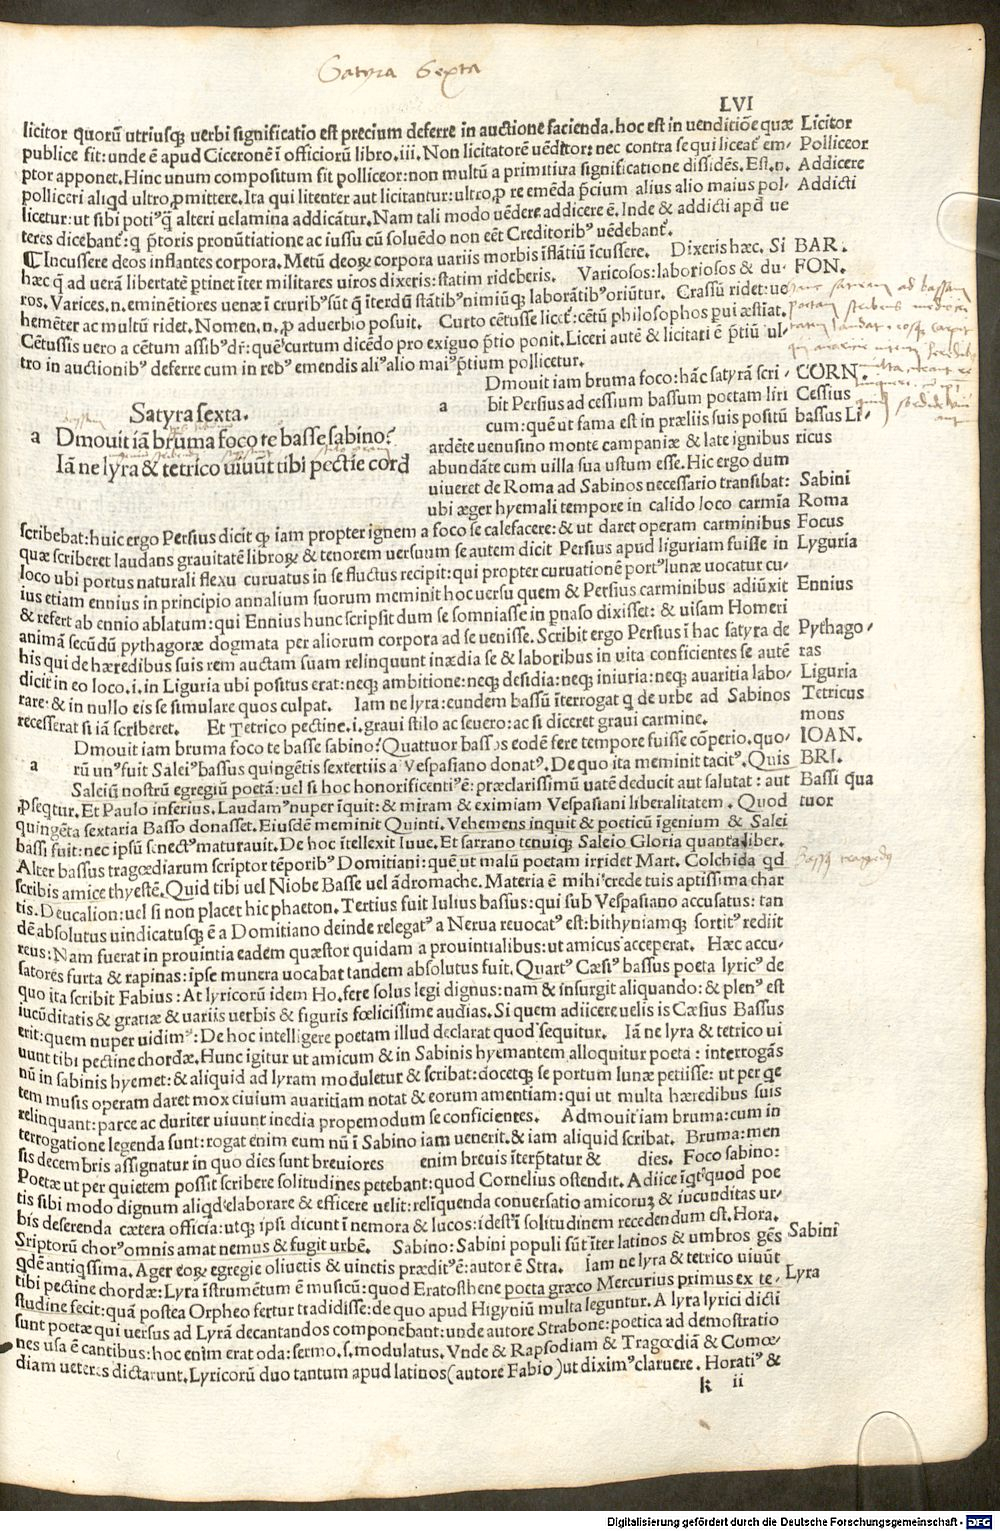 Satyra Sexta
LVI
licitor quorū utriusqꝫ uerbi significatio est precium deferre in auctione facienda.hoc est in uenditiōe quæ Licitor
publice fit:unde ē apud Ciceronē ī officiorū libro.iii.Non licitatorē uēditor:nec contra se qui liceat̄ em- Polliceor
ptor apponet.Hinc unum compositum fit polliceor:non multū a primitiua significatione dissidēs.Est.n. Addicere
polliceri aliqd ultro,ꝓmittere.Ita qui litenter aut licitantur:ultro,ꝓ re emēda p̄cium alius alio maius pol- Addicti
licetur:ut sibi poti⁹q̄ alteri uelamina addicātur.Nam tali modo uēdere addicere ē.Inde & addicti apd ue
teres dicebant̄:q p̄toris pronūtiatione ac iussu cū soluēdo non eēt Creditorib⁹ uēdebant̄.
¶Incussere deos inflantes corpora.Metū deoꝝ corpora uariis morbis īflātiū īcussere. Dixeris hæc. Si BAR.
hæc q ad uerā libertatē ꝑtinet īter militares uiros dixeris:statim rideberis. Varicosos:laboriosos & du- FON.
ros.Varices.n.eminētiores uenæ ī crurib⁹ sūt q īterdū stātib⁹nimiūqꝫ laborātib⁹oriūtur. Crassū ridet:ue
hemēter ac multū ridet.Nomen.n.ꝓ aduerbio posuit. Curto cētusse licet̄:cētū philosophos ꝑui æstīat.
Cētussis uero a cētum assib⁹dr̄:quē curtum dicēdo pro exiguo p̄tio ponit.Liceri autē & licitari ē p̄tiū ul
tro in auctionib⁹ deferre cum in reb⁹ emendis ali⁹alio mai⁹p̄tium pollicetur.
Dmouit iam bruma foco:hāc satyrā scri- CORN.
a bit Persius ad cessium bassum poetam liri Cessius
cum:quē ut fama est in præliis suis positū bassus Li-
ardēte uenusino monte campaniæ & late ignibus ricus
abundāte cum uilla sua ustum esse.Hic ergo dum
uiueret de Roma ad Sabinos necessario transibat: Sabini
ubi æger hyemali tempore in calido loco carmīa Roma
Satyra sexta.
a Dmouit iā bruma foco te basse sabino?
Iā ne lyra & tetrico uiuūt tibi pectīe cord
scribebat:huic ergo Persius dicit qꝫ iam propter ignem a foco se calefacere:& ut daret operam carminibus Focus
quæ scriberet laudans grauitatē libroꝝ & tenorem uersuum se autem dicit Persius apud liguriam fuisse in Lyguria
loco ubi portus naturali flexu curuatus in se fluctus recipit:qui propter curuationē port⁹lunæ uocatur cu-
ius etiam ennius in principio annalium suorum meminit hoc uersu quem & Persius carminibus adiūxit Ennius
& refert ab ennio ablatum:qui Ennius hunc scripsit dum se somniasse in ꝑnaso dixisset:& uisam Homeri
animā secūdū pythagoræ dogmata per aliorum corpora ad se uenisse.Scribit ergo Persius ī hac satyra de Pythago-
his qui de hæredibus suis rem auctam suam relinquunt inædia se & laboribus in uita conficientes se autē ras
dicit in eo loco.i.in Liguria ubi positus erat:neqꝫ ambitione:neqꝫ desidia:neqꝫ iniuria:neqꝫ auaritia labo- Liguria
rare:& in nullo eis se simulare quos culpat. Iam ne lyra:eundem bassū īterrogat q de urbe ad Sabinos Tetricus
recesserat si iā scriberet. Et Tetrico pectine.i.graui stilo ac seuero:ac si diceret graui carmine. mons
Dmouit iam bruma foco te basse sabino?Quattuor bassos eodē fere tempore fuisse cōperio.quo- IOAN.
a rū un⁹fuit Salei⁹bassus quingētis sextertiis a Vespasiano donat⁹.De quo ita meminit tacit⁹.Quis BRI.
Saleiū nostrū egregiū poetā:uel si hoc honorificenti⁹ē:præclarissimū uatē deducit aut salutat: aut Bassi qua
ꝓseqtur.Et Paulo inferius.Laudam⁹nuper īquit:& miram & eximiam Vespasiani liberalitatem. Quod tuor
quingēta sextaria Basso donasset.Eiusdē meminit Quinti.Vehemens inquit & poeticū īgenium & Salei
bassi fuit:nec ipsū senect⁹maturauit.De hoc ītellexit Iuue.Et sarrano tenuiqꝫ Saleio Gloria quanta liber.
Alter bassus tragœdiarum scriptor tēporib⁹Domitiani:quē ut malū poetam irridet Mart. Colchida qd
scribis amice thyestē.Quid tibi uel Niobe Basse uel ādromache.Materia ē mihi crede tuis aptissima char
tis.Deucalion:uel si non placet hic phaeton.Tertius fuit Iulius bassus:qui sub Vespasiano accusatus: tan
dē absolutus uindicatusqꝫ ē a Domitiano deinde relegat⁹ a Nerua reuocat⁹ est:bithyniamqꝫ sortit⁹ rediit
reus:Nam fuerat in prouintia eadem quæstor quidam a prouintialibus:ut amicus acceperat. Hæc accu-
satores furta & rapinas:ipse munera uocabat tandem absolutus fuit.Quart⁹ Cæsi⁹ bassus poeta lyric⁹ de
quo ita scribit Fabius:At lyricorū idem Ho.fere solus legi dignus:nam & insurgit aliquando:& plen⁹ est
iucūditatis & gratiæ & uariis uerbis & figuris fœlicissime audias.Si quem adiicere uelis is Cæsius Bassus
erit:quem nuper uidim⁹:De hoc intelligere poetam illud declarat quod sequitur. Iā ne lyra & tetrico ui
uunt tibi pectine chordæ.Hunc igitur ut amicum & in Sabinis hyemantem alloquitur poeta: interrogās
nū in sabinis hyemet:& aliquid ad lyram moduletur & scribat:docetqꝫ se portum lunæ petiisse: ut per qe
tem musis operam daret mox ciuium auaritiam notat & eorum amentiam:qui ut multa hæredibus suis
relinquant:parce ac duriter uiuunt inedia propemodum se conficientes. Admouit iam bruma:cum in
terrogatione legenda sunt:rogat enim eum nū ī Sabino iam uenerit.& iam aliquid scribat. Bruma:men
sis decembris assignatur in quo dies sunt breuiores enim breuis īterp̄tatur & dies. Foco sabino:
Poetæ ut per quietem possit scribere solitudines petebant:quod Cornelius ostendit.Adiice īgt⁹quod poe
tis sibi modo dignum aliqd elaborare & efficere uelit:relīquenda conuersatio amicoruꝫ & iucunditas ur-
bis deserenda cætera officia:utqꝫ ipsi dicunt ī nemora & lucos:idest ī solitudinem recedendum est.Hora.
Sriptorū chor⁹omnis amat nemus & fugit urbē. Sabino:Sabini populi sūt īter latinos & umbros gēs Sabini
qdē antiqssima.Ager eoꝝ egregie oliuetis & uinetis prædit⁹ē:autor ē Stra. Iam ne lyra & tetrico uiuūt
tibi pectine chordæ:Lyra īstrumētum ē musicū:quod Eratosthene poeta græco Mercurius primus ex te- Lyra
studine fecit:quā postea Orpheo fertur tradidisse:de quo apud Higyniū multa leguntur.A lyra lyrici dicti
sunt poetæ qui uersus ad Lyrā decantandos componebant:unde autore Strabone:poetica ad demostratio
nes usa ē cantibus:hoc enim erat oda:sermo.s.modulatus.Vnde & Rapsodiam & Tragœdiā & Comœ-
diam ueteres dictarunt.Lyricorū duo tantum apud latinos(autore Fabio)ut dixim⁹claruere.Horati⁹ &
k ii
Digitalisierung gefördert durch die Deutsche Forschungsgemeinschaft - DFG